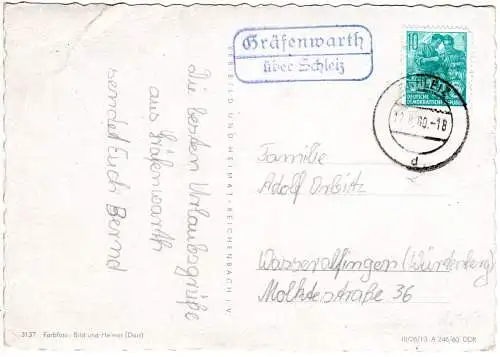 Gräfenwarth
über Schleiz
10
DEUTSCHE
DEMOKRATISCHE REPUBLIK
SCHLEIZ
60.-18
d
die besten Urlaubsgrüße
aus Gräfenwarth
sendet Euch Bernd
VERLAG BILD UND HEIMAT · REICHENBACH i. V.
Familie
Adolf
Wasseralfingen (Würtenberg)
Moltkestraße 36
3137 Farbfoto: Bild und Heimat (Darr)
III/26/13 A 246/60 DDR